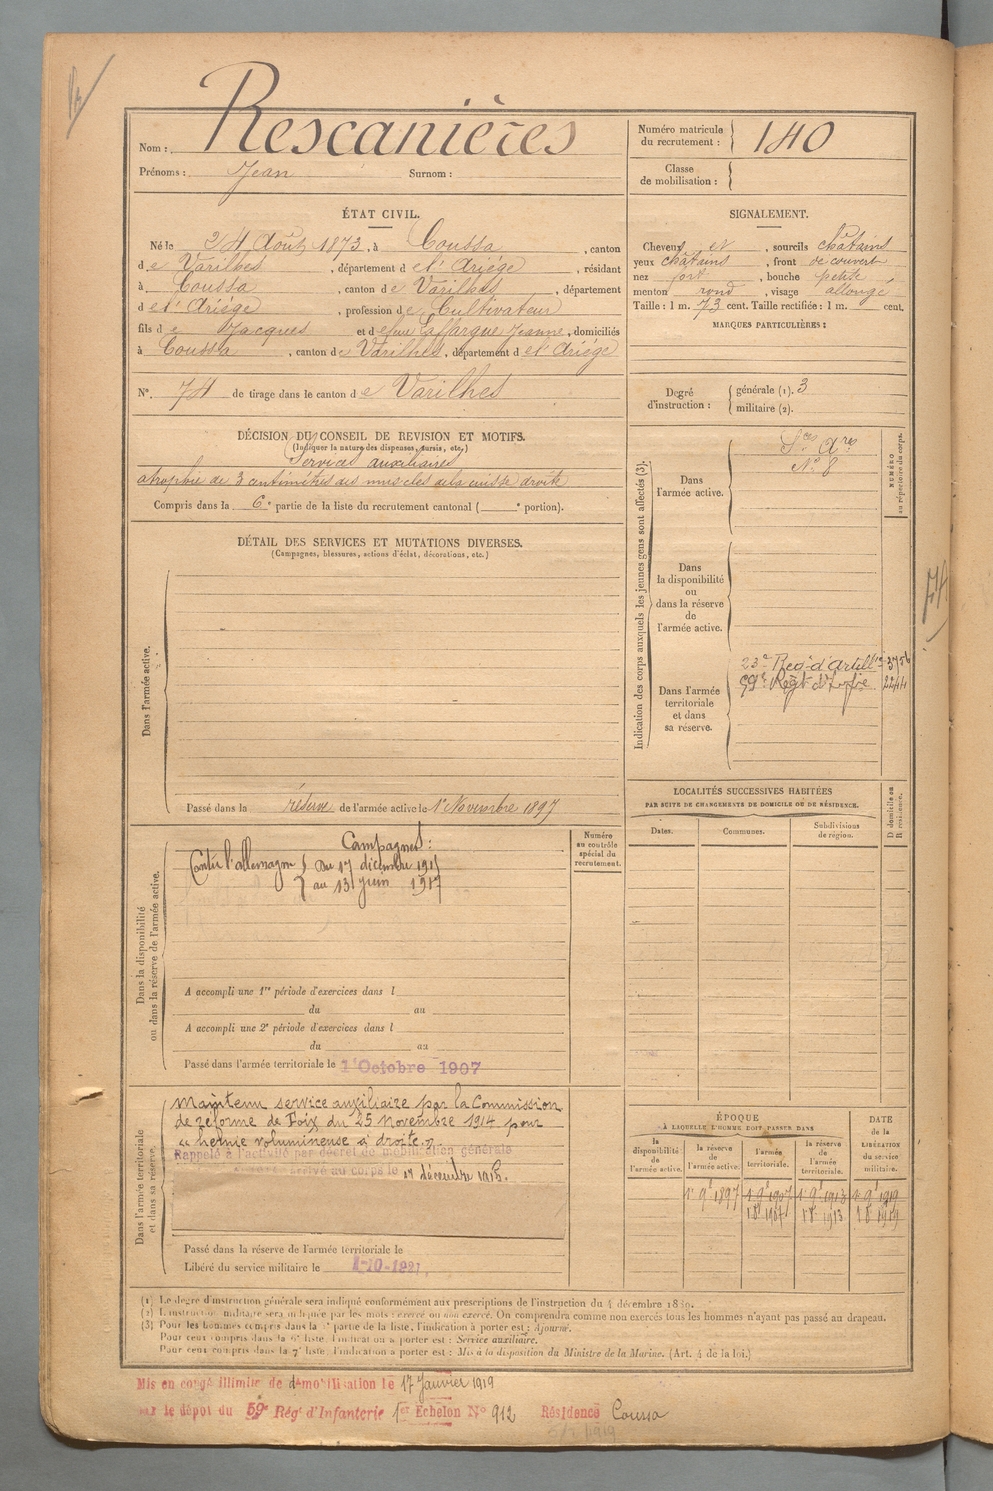 Nom : Rescanières
Prénoms : Jean Surnom :
Numéro matricule du recrutement : 140
Classe de mobilisation :
ÉTAT CIVIL.
Né le 24 Août 1873, à Coussa, canton
de Varilhes, département de l'Ariège, résidant
à Coussa, canton de Varilhes, département
de l'Ariège, profession de Cultivateur
fils de Jacques et de feue Laffargue Jeanne, domiciliés
à Coussa, canton de Varilhes, département de l'Ariège
N° 74 de tirage dans le canton de Varilhes
SIGNALEMENT.
Cheveux et , sourcils châtains
yeux châtains, front découvert
nez fort, bouche petite
menton rond, visage allongé
Taille : 1 m. 73 cent. Taille rectifiée : 1 m. cent.
MARQUES PARTICULIÈRES :
Degré d'instruction : générale (1). 3
militaire (2).
DÉCISION DU CONSEIL DE REVISION ET MOTIFS.
(Indiquer la nature des dispenses, sursis, etc.)
Services auxiliaires
atrophie de 3 centimètres des muscles de la cuisse droite
Compris dans la 6e partie de la liste du recrutement cantonal ( e portion).
DÉTAIL DES SERVICES ET MUTATIONS DIVERSES.
(Campagnes, blessures, actions d'éclat, décorations, etc.)
Dans l'armée active.
Passé dans la réserve de l'armée active le 1er Novembre 1897
Indication des corps auxquels les jeunes gens sont affectés (3).
NUMÉRO au répertoire du corps.
Dans l'armée active.
Sces Ares
N° 8
Dans la disponibilité ou dans la réserve de l'armée active.
Dans l'armée territoriale et dans sa réserve.
23e Reg. d'Artillie 3756
59e Régt d'Infrie 2244
74
LOCALITÉS SUCCESSIVES HABITÉES
PAR SUITE DE CHANGEMENTS DE DOMICILE OU DE RÉSIDENCE.
D domicile ou R résidence.
Dates. Communes. Subdivisions de région.
Dans la disponibilité ou dans la réserve de l'armée active.
Numéro au contrôle spécial du recrutement.
Campagnes :
Contre l'allemagne { Du 17 décembre 1915
au 13 juin 1917
A accompli une 1re période d'exercices dans l
du au
A accompli une 2e période d'exercices dans l
du au
Passé dans l'armée territoriale le 1er Octobre 1907
Dans l'armée territoriale et dans sa réserve.
Maintenu service auxiliaire par la Commission
de réforme de Foix du 25 Novembre 1914 pour
« hernie volumineuse à droite »
Rappelé à l'activité par décret de mobilisation générale
arrivé au corps le 17 décembre 1915.
Passé dans la réserve de l'armée territoriale le
Libéré du service militaire le 1-10-1921.
ÉPOQUE
À LAQUELLE L'HOMME DOIT PASSER DANS
DATE de la LIBÉRATION du service militaire.
la disponibilité de l'armée active. la réserve de l'armée active. l'armée territoriale. la réserve de l'armée territoriale.
1er 9e 1897 1er 9e 1907 1er 9e 1913 1er 9e 1919
1 8e 1907 1 8e 1913 1 8e 1919
(1) Le degré d'instruction générale sera indiqué conformément aux prescriptions de l'instruction du 4 décembre 1889.
(2) L'instruction militaire sera indiquée par les mots : exercé ou non exercé. On comprendra comme non exercés tous les hommes n'ayant pas passé au drapeau.
(3) Pour les hommes compris dans la partie de la liste, l'indication à porter est : Ajourné.
Pour ceux compris dans la 6e liste, l'indication à porter est : Service auxiliaire.
Pour ceux compris dans la 7e liste l'indication à porter est : Mis à la disposition du Ministre de la Marine. (Art. 4 de la loi.)
Mis en congé illimité de démobilisation le 17 Janvier 1919
par le dépot du 59e Régt d'Infanterie 1er Echelon N° 912 Résidence Coussa